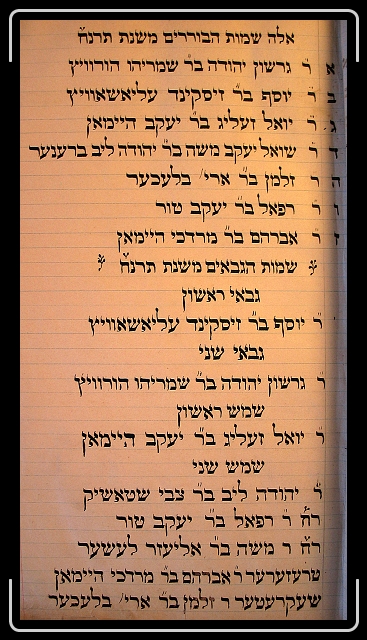 אלה שמות הבוררים משנת תרנ״ח
א ר׳ גרשון יהודה בר׳ שמריהו הורוויץ
ב ר׳ יוסף בר׳ זיסקינד עליאשאוויץ
ג ר׳ יואל זעליג בר׳ יעקב היימאן
ד ר׳ שואל יעקב משה בר׳ יהודה ליב ברענער
ה ר׳ זלמן בר׳ ארי׳ בלעכער
ו ר׳ רפאל בר׳ יעקב טור
ז ר׳ אברהם בר׳ מרדכי היימאן
שמות הגבאים משנת תרנ״ח
גבאי ראשון
ר׳ יוסף בר׳ זיסקינד עליאשאוויץ
גבאי שני
ר׳ גרשון יהודה בר׳ שמריהו הורוויץ
שמש ראשון
ר׳ יואל זעליג בר׳ יעקב היימאן
שמש שני
ר׳ יהודה ליב בר׳ צבי שטאשיק
ר״ח ר׳ רפאל בר׳ יעקב טור
ר״ח ר׳ משה בר׳ אליעזר לעשער
טרעזערער ר׳ אברהם בר׳ מרדכי היימאן
שעקרעטער ר׳ זלמן בר׳ ארי׳ בלעכער